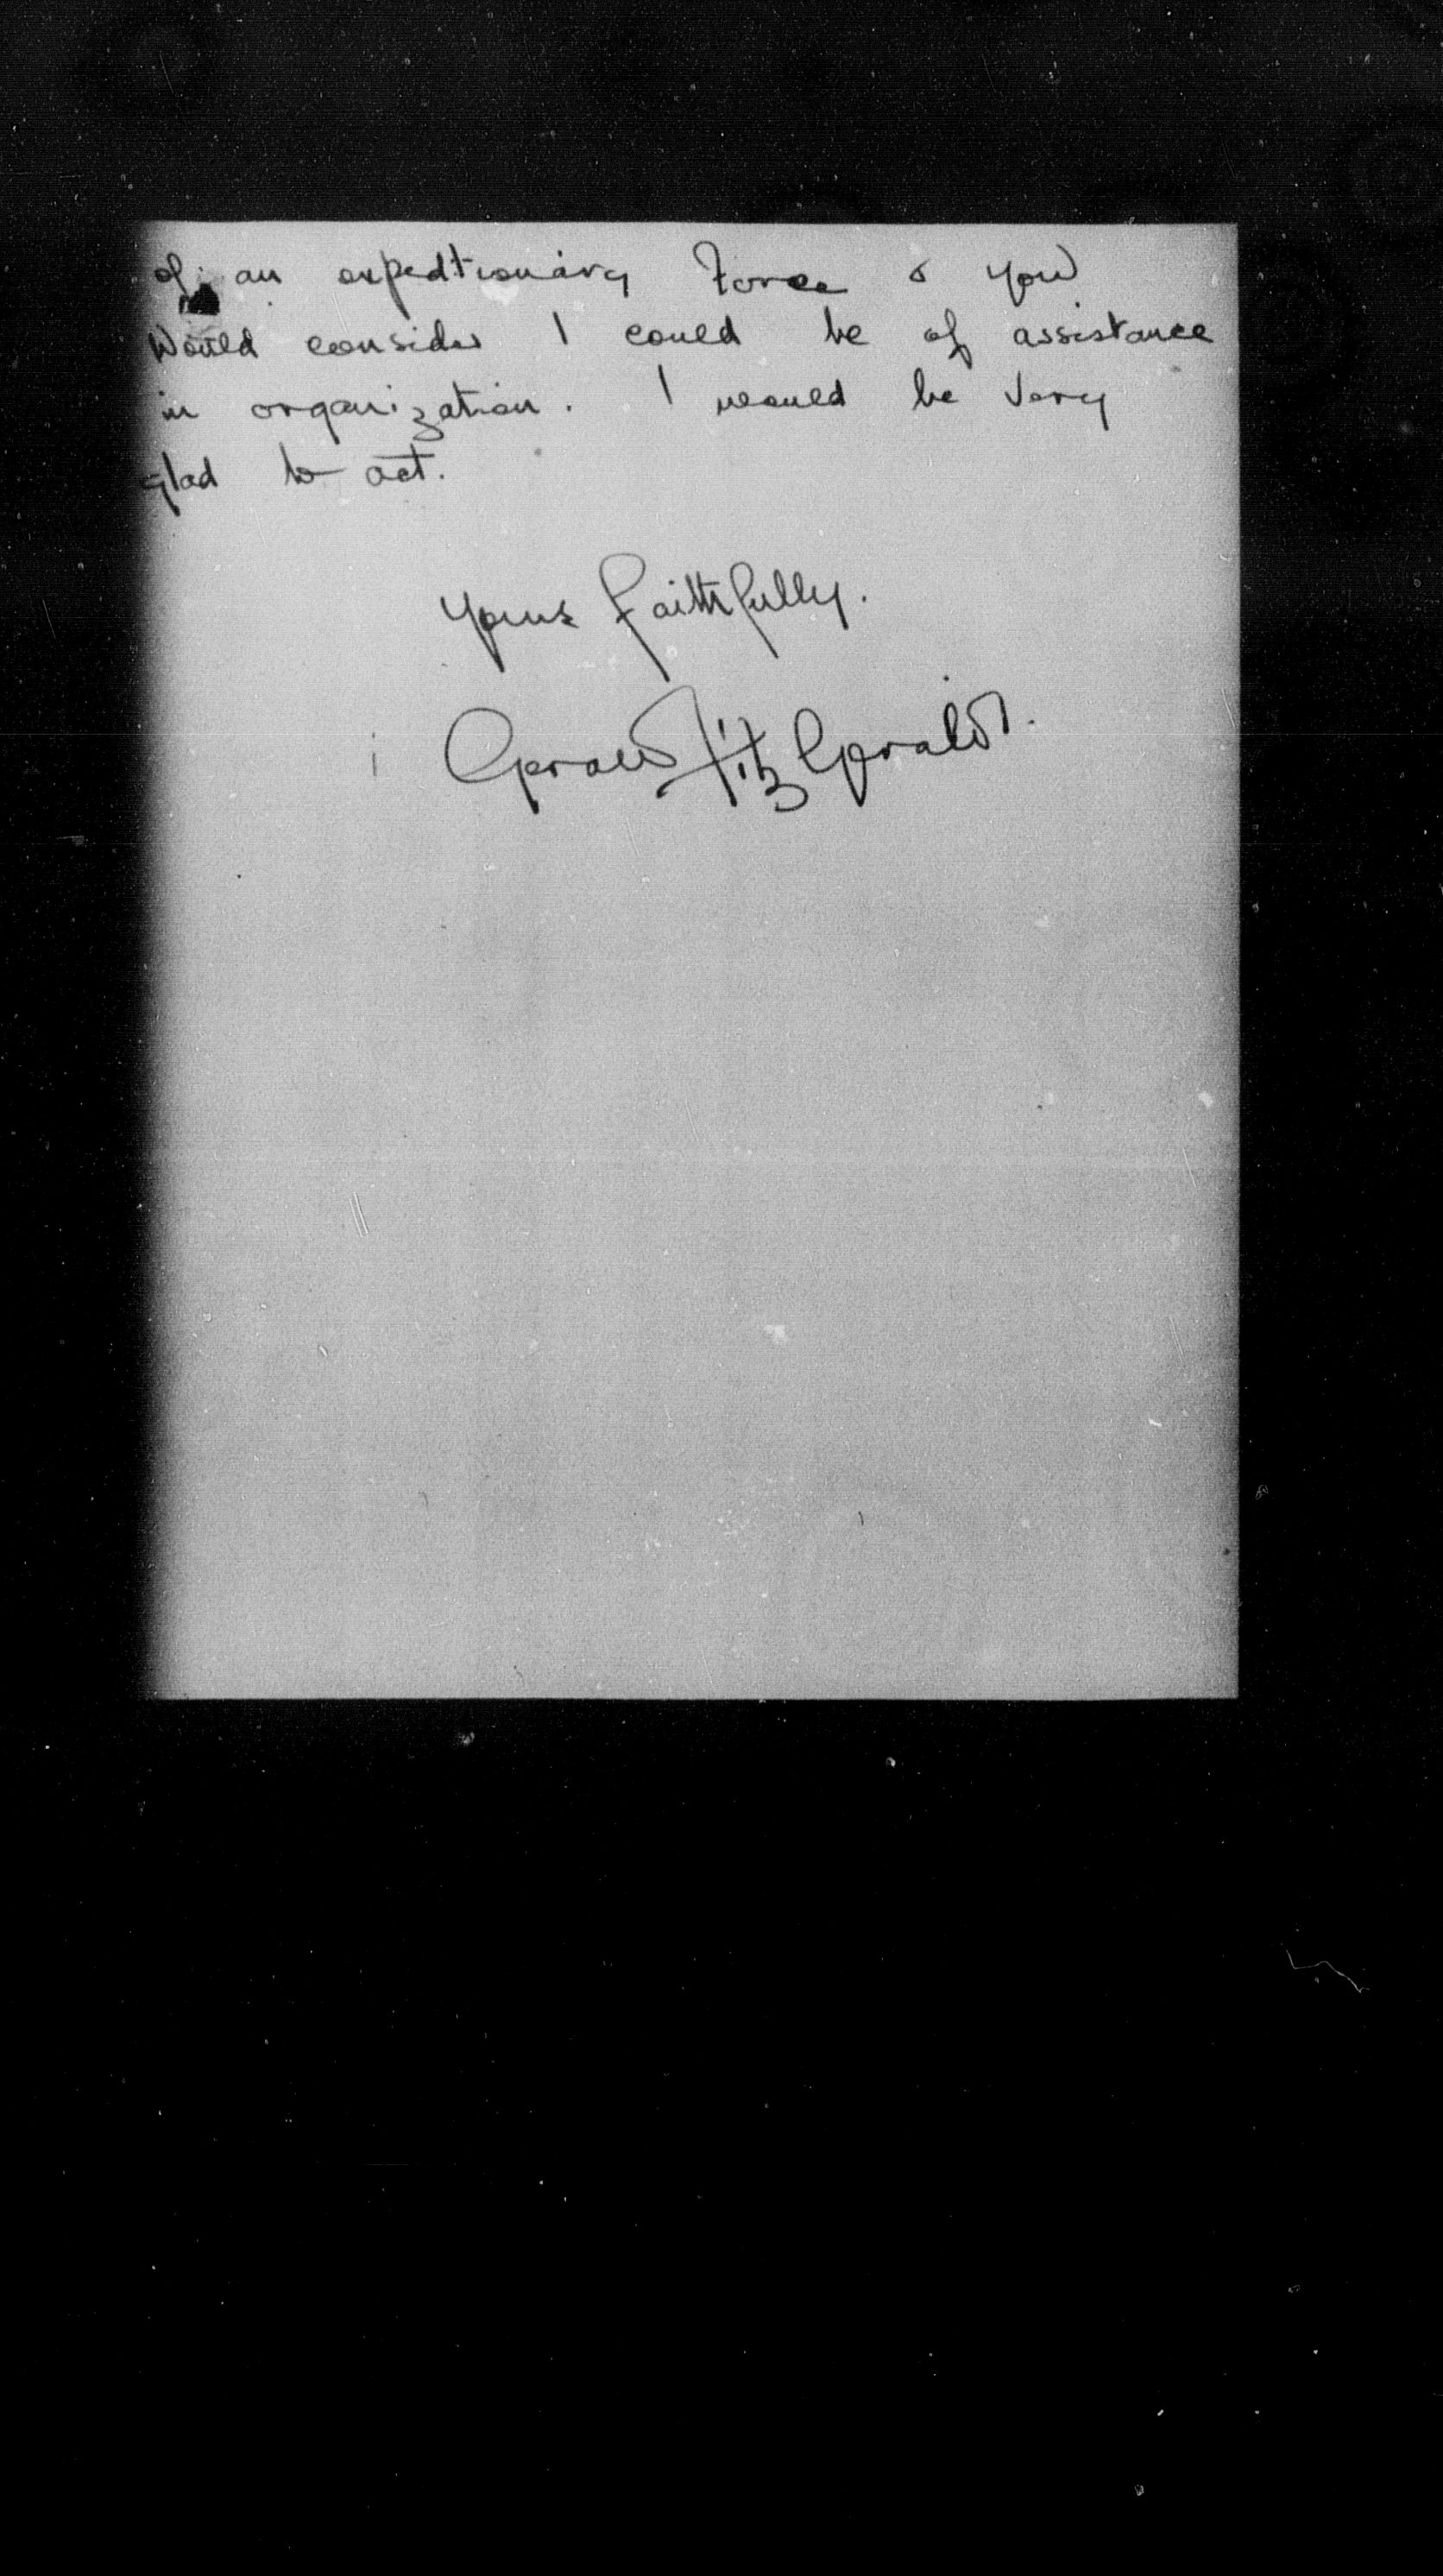 of an expedtionary Force & you
Would consider I could be of assistance
in organization. I would be very
glad to act.
Yours faithfully.
Gerald FitzGerald.